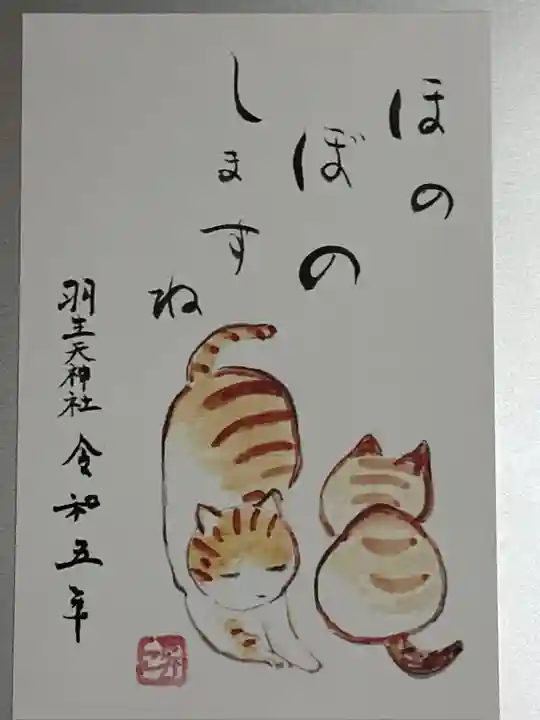 ほの
ぼの
しますね
羽生天神社 令和五年